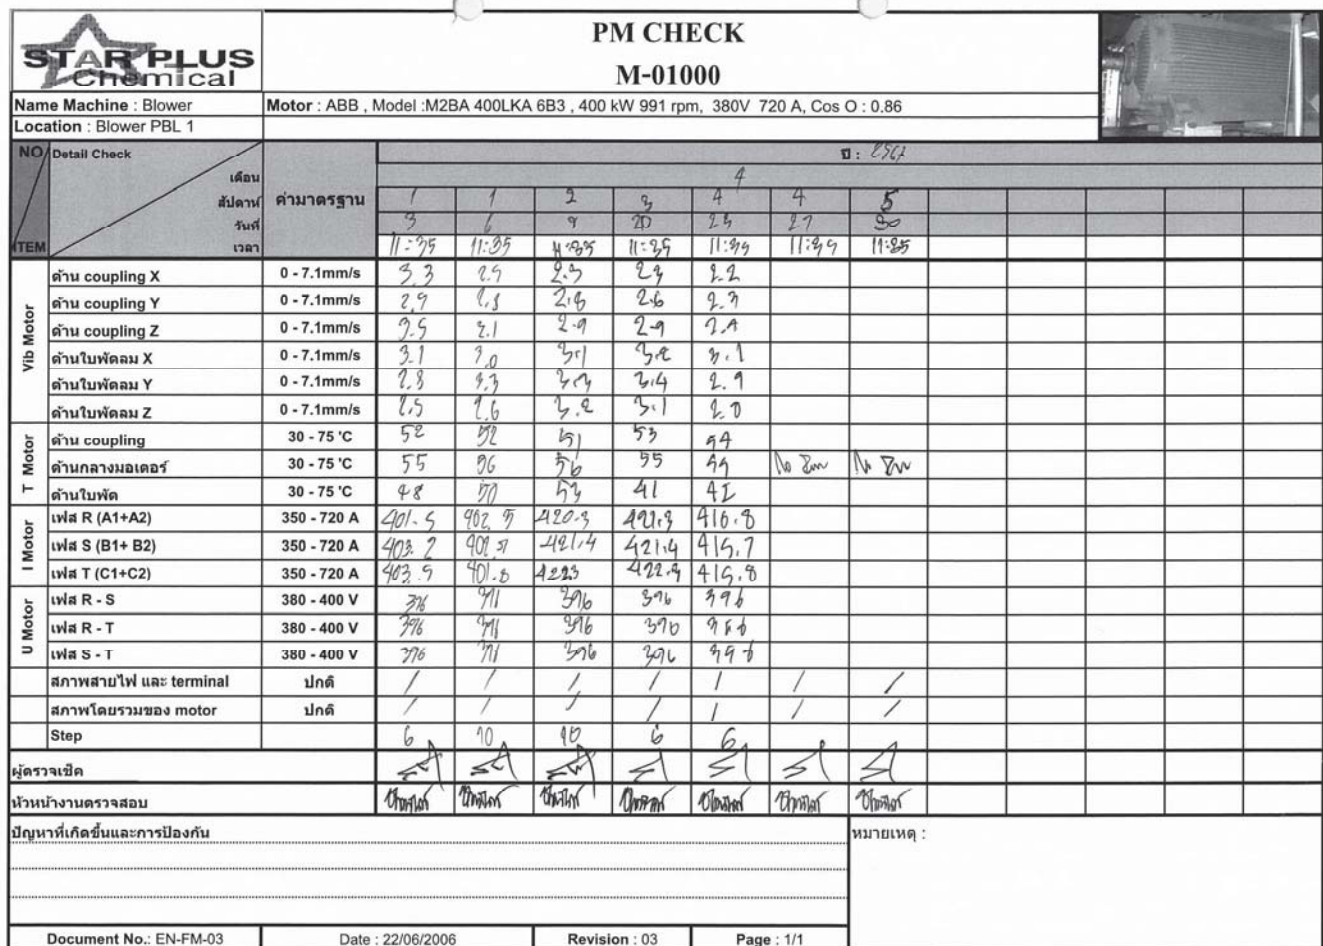 STAR PLUS
Chemical
PM CHECK
M-01000
Name Machine : Blower
Motor : ABB , Model :M2BA 400LKA 6B3 , 400 kW 991 rpm, 380V 720 A, Cos O : 0.86
Location : Blower PBL 1
NO Detail Check ปี :
เดือน 4
สัปดาห์ ค่ามาตรฐาน 1 1 2 3 4 4 5
วันที่ 3 6 9 20 27
ITEM เวลา 11:35 11:35 11:35
Vib Motor
ด้าน coupling X 0 - 7.1mm/s 3.3 2.3 2.2
ด้าน coupling Y 0 - 7.1mm/s 2.9 2.8 2.6 2.3
ด้าน coupling Z 0 - 7.1mm/s 3.5 2.9 2.9
ด้านใบพัดลม X 0 - 7.1mm/s 3.1 3.0 3.1 3.2 3.1
ด้านใบพัดลม Y 0 - 7.1mm/s 3.3 3.3 3.4 2.9
ด้านใบพัดลม Z 0 - 7.1mm/s 2.5 2.6 3.2 3.1
T Motor
ด้าน coupling 30 - 75 'C 52 52 51 53 54
ด้านกลางมอเตอร์ 30 - 75 'C 55 56 56 55 55 No Run No Run
ด้านใบพัด 30 - 75 'C 48 50 53 41
I Motor
เฟส R (A1+A2) 350 - 720 A 401.5 402.5 420.3 421.3 416.8
เฟส S (B1+ B2) 350 - 720 A 403.2 421.4 421.4 415.7
เฟส T (C1+C2) 350 - 720 A 403.5 401.8 422.3 415.8
U Motor
เฟส R - S 380 - 400 V 396 396 396 396
เฟส R - T 380 - 400 V 396 396 396
เฟส S - T 380 - 400 V 396 396 396 396
สภาพสายไฟ และ terminal ปกติ / / / / / / /
สภาพโดยรวมของ motor ปกติ / / / / / / /
Step 6 10 10 6 6
ผู้ตรวจเช็ค
หัวหน้างานตรวจสอบ
ปัญหาที่เกิดขึ้นและการป้องกัน
หมายเหตุ :
Document No.: EN-FM-03 Date : 22/06/2006 Revision : 03 Page : 1/1